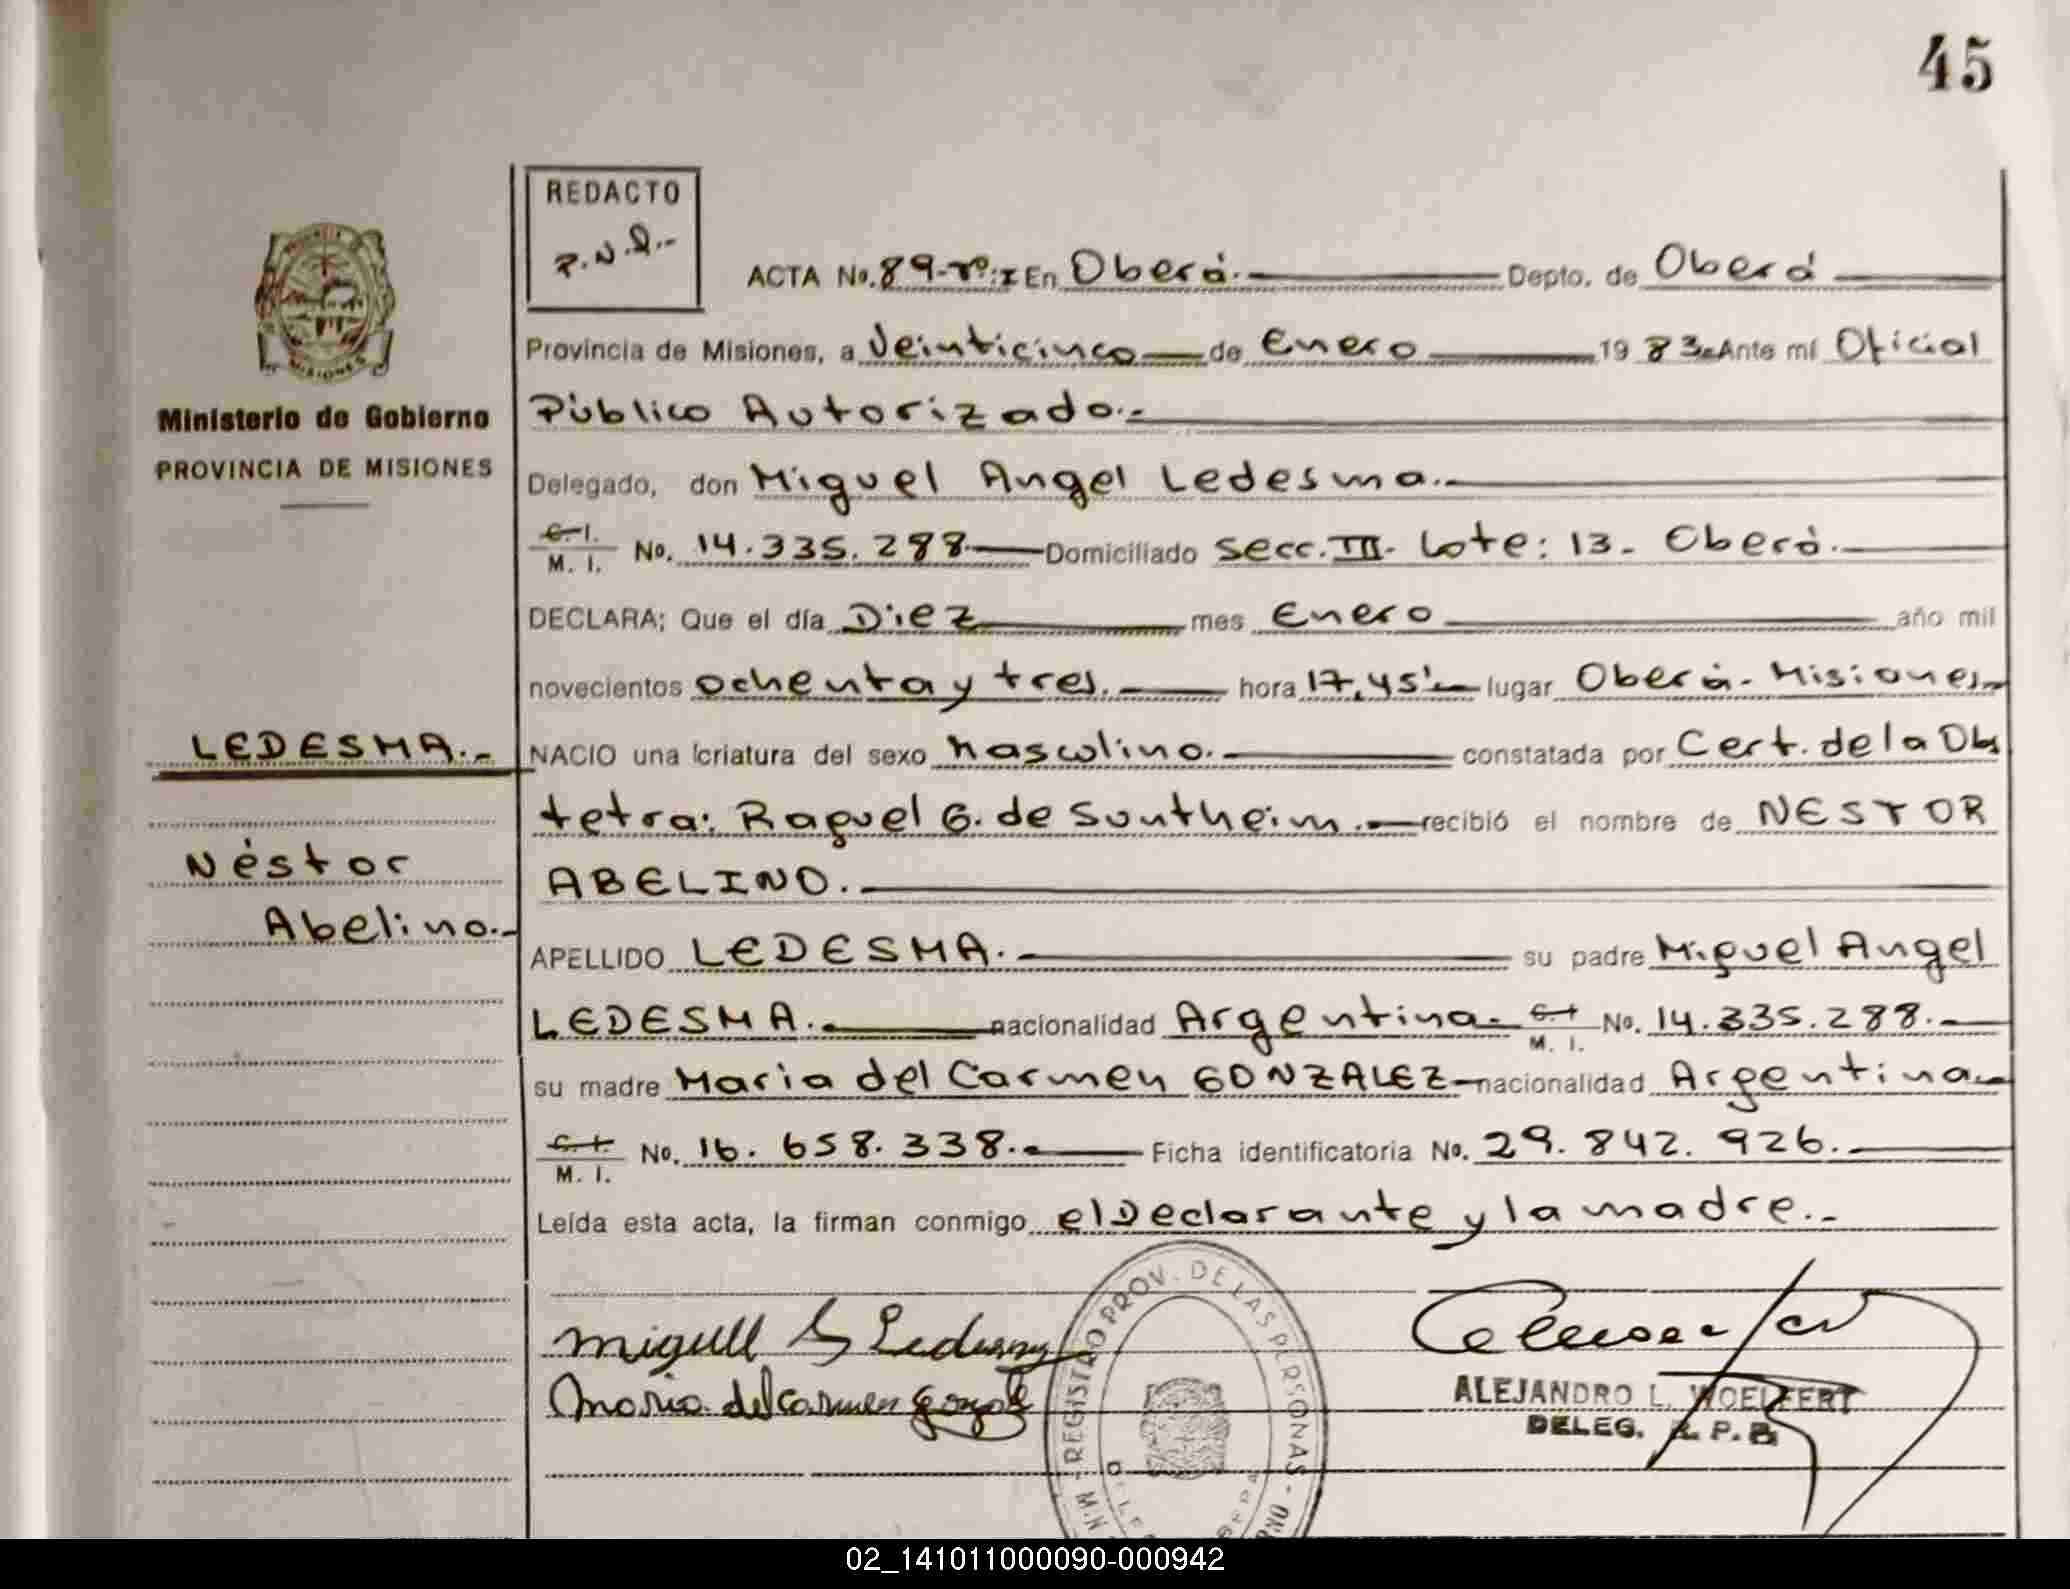 45
REDACTO
P.N.Q.-
ACTA No. 89-Tº:I En Oberá. Depto. de Oberá
Provincia de Misiones, a Veinticinco de Enero 1983.Ante mí Oficial
Público Autorizado.-
Delegado, don Miguel Angel Ledesma.-
C. I. M. I. No. 14.335.288 Domiciliado Secc. III. Lote: 13. Oberá.
DECLARA; Que el día Diez mes Enero año mil
novecientos ochenta y tres. hora 17,45'- lugar Oberá. Misiones.-
NACIO una criatura del sexo Masculino. constatada por Cert. de la Obs
tetra: Raquel G. de Suntheim.- recibió el nombre de NESTOR
ABELINO.
APELLIDO LEDESMA. su padre Miguel Angel
LEDESMA. nacionalidad Argentina. C. I. M. I. No. 14.335.288.-
su madre Maria del Carmen GONZALEZ nacionalidad Argentina.-
C. I. M. I. No. 16.658.338.- Ficha identificatoria No. 29.842.926.
Leída esta acta, la firman conmigo el Declarante y la madre.-
Ministerio de Gobierno
PROVINCIA DE MISIONES
LEDESMA.-
Néstor
Abelino.-
Maria del Carmen
REGISTRO PROV. DE LAS PERSONAS
ALEJANDRO L. WOELFERT
DELEG. R. P. P.
02_141011000090-000942